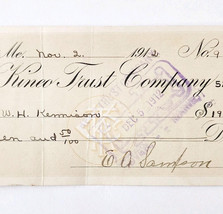 Me. Nov. 2 1912 No. 9
Kineo Trust Company
W. H. Kennison $19
en and 50/100 D
E. A. Sampson